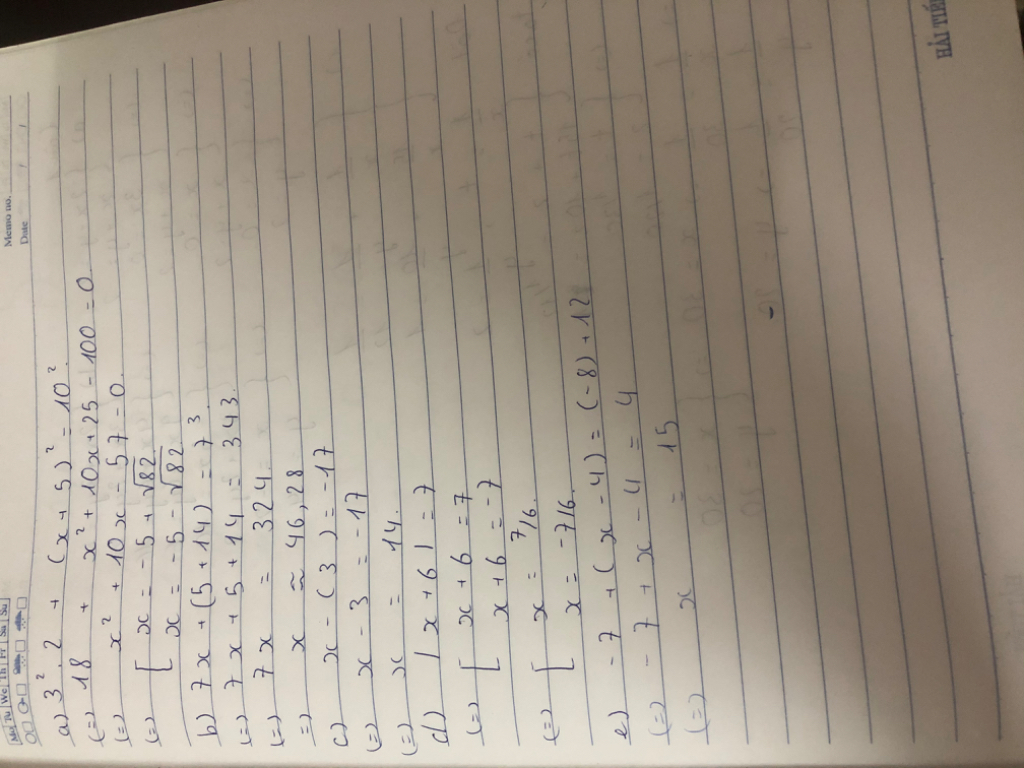 Memo no.
Date
Mo Tu We Th Fr Sa Su
a) 3². 2 + (x + 5)² = 10².
(=) 18 + x² + 10x + 25 - 100 = 0
(=) x² + 10x - 57 = 0.
(=) [ x = -5 + √82
[ x = -5 - √82
b) 7x + (5 + 14) = 7³
(=) 7x + 5 + 14 = 343.
(=) 7x = 324.
=) x ≃ 46,28
c) x - (3) = -17
(=) x - 3 = -17
(=) x = 14.
d) | x + 6 | = 7
(=) [ x + 6 = 7
[ x + 6 = -7
(=) [ x = 7/6.
[ x = -7/6.
e) - 7 + (x - 4) = (-8) + 12
(=) - 7 + x - 4 = 4
(=) x = 15
HẢI TIẾN